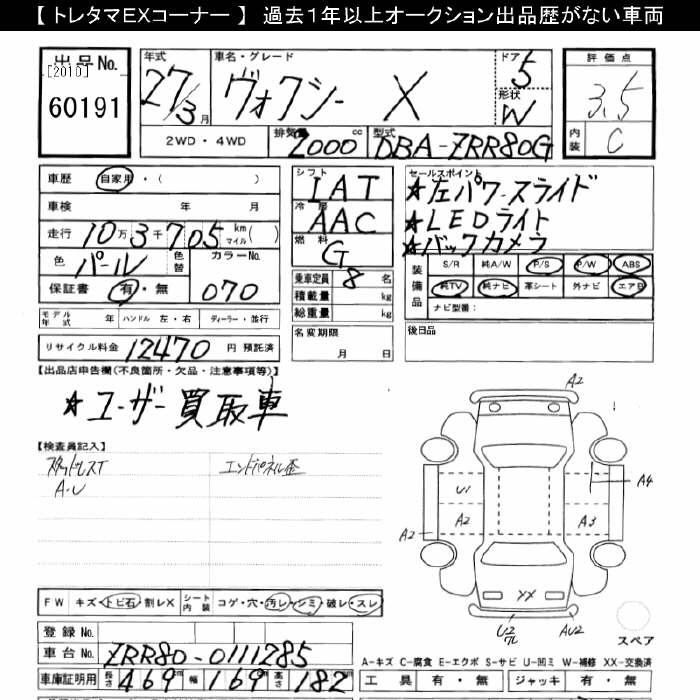 【 トレタマEXコーナー 】 過去1年以上オークション出品歴がない車両
出品No.
[2010]
60191
年式
27/3月
車名・グレード
ヴォクシー X
ドア
5
形状
W
評価点
3.5
内装
C
2WD・4WD
排気量 2000 cc
型式 DBA-ZRR80G
車歴 自家用・( )
車検 年 月
走行 10万3千705 km マイル( )
色 パール 色替 カラーNo. 070
保証書 有・無
モデル年式 年 ハンドル 左・右 ディーラー・並行
リサイクル料金 12470 円 預託済
シフト IAT
冷房 AAC
燃料 G
乗車定員 8 名
積載量 kg
総重量 kg
名変期限
月 日
セールスポイント
★左パワースライド
★LEDライト
★バックカメラ
装備品
S/R 純A/W P/S P/W ABS
純TV 純ナビ 革シート 外ナビ エアB
ナビ型番:
後日品
【出品店申告欄(不良箇所・欠品・注意事項等)】
★ユーザー買取車
【検査員記入】
スタッドレスT エンドパネル歪
A・U
A2
U1
A4
A2
A2
A3
XX
U2
AU2
スペア
FW キズ・トビ石・割レX シート内装 コゲ・穴・汚レ・シミ・破レ・スレ
登録No.
車台No. ZRR80-0111285
車庫証明用 長さ 469cm 幅 169cm 高さ 182cm
A-キズ C-腐食 E-エクボ S-サビ U-凹ミ W-補修 XX-交換済
工具 有・無 ジャッキ 有・無